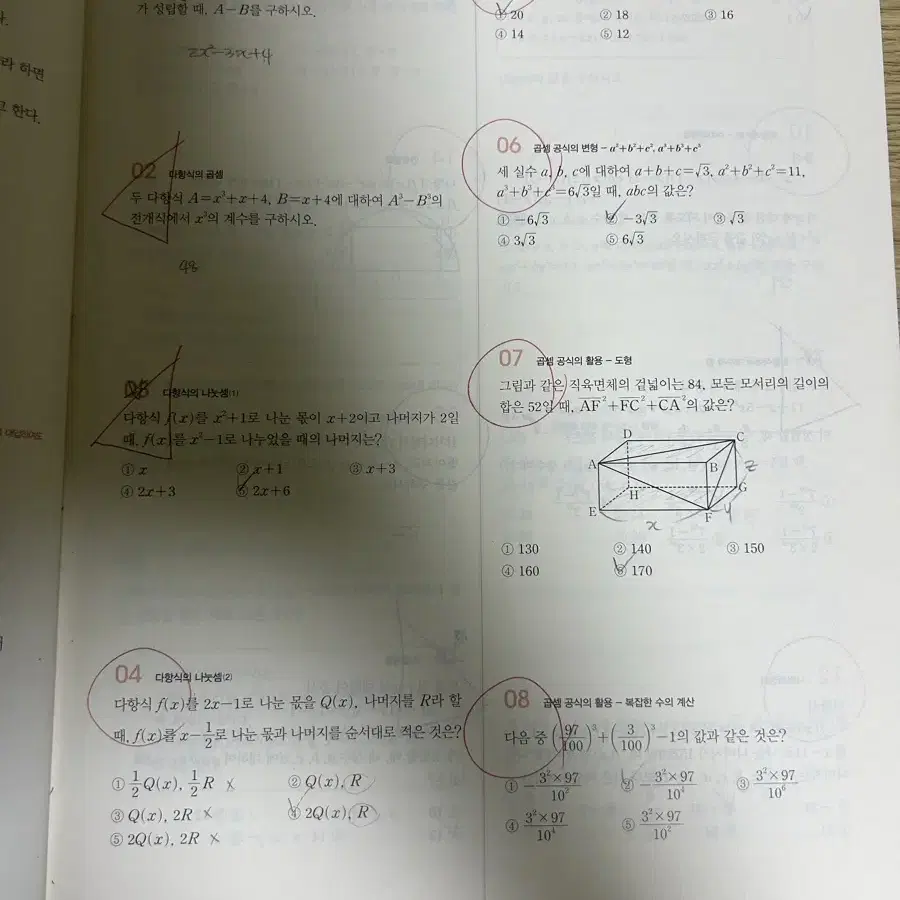 라 하면
고 한다.
가 성립할 때, A−B를 구하시오.
2x²−3x+4
02 다항식의 곱셈
두 다항식 A=x³+x+4, B=x+4에 대하여 A³−B³의
전개식에서 x³의 계수를 구하시오.
48
다항식의 나눗셈(1)
다항식 f(x)를 x²+1로 나눈 몫이 x+2이고 나머지가 2일
때, f(x)를 x²−1로 나누었을 때의 나머지는?
① x ② x+1 ③ x+3
④ 2x+3 ⑤ 2x+6
04 다항식의 나눗셈(2)
다항식 f(x)를 2x−1로 나눈 몫을 Q(x), 나머지를 R라 할
때, f(x)를 x−1/2로 나눈 몫과 나머지를 순서대로 적은 것은?
① 1/2Q(x), 1/2R × ② Q(x), R
③ Q(x), 2R × ④ 2Q(x), R
⑤ 2Q(x), 2R ×
① 20 ② 18 ③ 16
④ 14 ⑤ 12
06 곱셈 공식의 변형 – a²+b²+c², a³+b³+c³
세 실수 a, b, c에 대하여 a+b+c=√3, a²+b²+c²=11,
a³+b³+c³=6√3일 때, abc의 값은?
① −6√3 ② −3√3 ③ √3
④ 3√3 ⑤ 6√3
07 곱셈 공식의 활용 – 도형
그림과 같은 직육면체의 겉넓이는 84, 모든 모서리의 길이의
합은 52일 때, AF²+FC²+CA²의 값은?
D C
A B z
H G
E F y
x
① 130 ② 140 ③ 150
④ 160 ⑤ 170
08 곱셈 공식의 활용 – 복잡한 수의 계산
다음 중 (97/100)³+(3/100)³−1의 값과 같은 것은?
① −3²×97/10² ② −3²×97/10⁴ ③ 3²×97/10⁶
④ 3²×97/10⁴ ⑤ 3²×97/10²